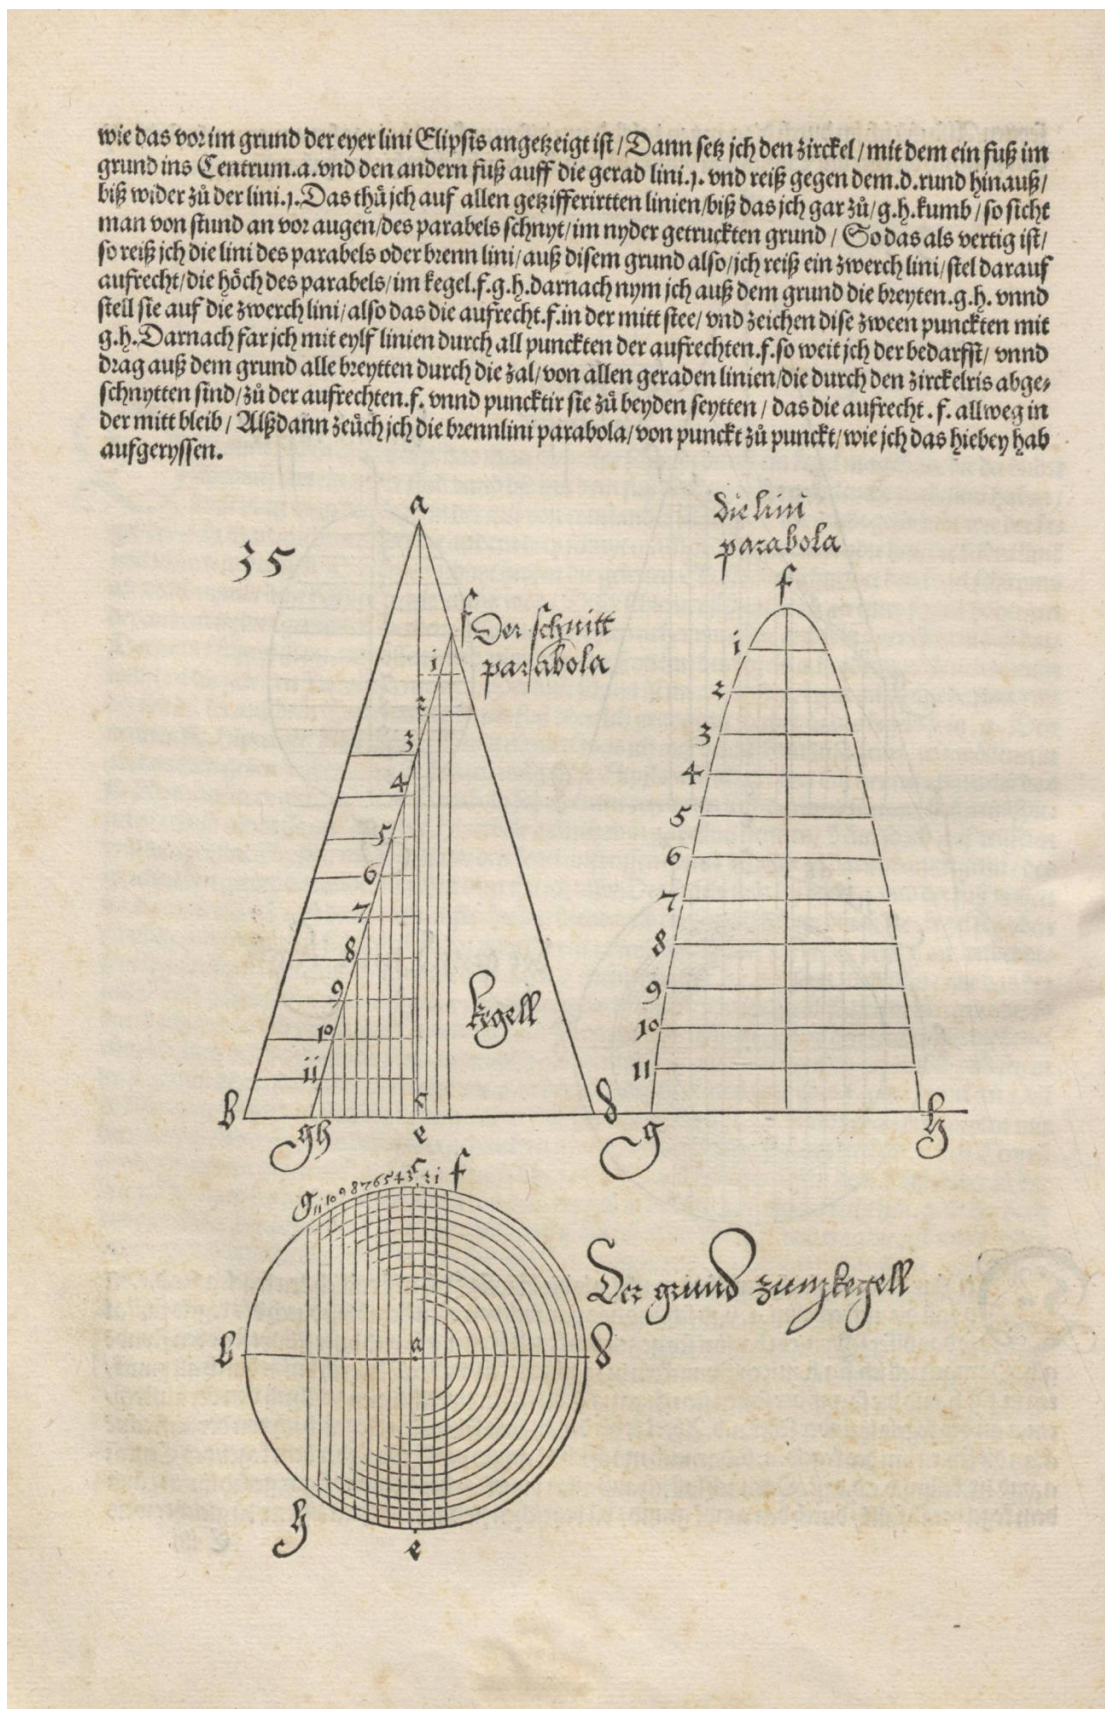 wie das vor im grund der eyer lini Elipsis angetzeigt ist / Dann setz jch den zirckel / mit dem ein fuß im
grund ins Centrum .a. vnd den andern fuß auff die gerad lini .1. vnd reiß gegen dem .d. rund hinauß /
biß wider zů der lini .1. Das thů jch auf allen getzifferirtten linien / biß das jch gar zů / g.h. kumb / so sicht
man von stund an vor augen / des parabels schnyt / im nyder getruckten grund / So das als vertig ist /
so reiß jch die lini des parabels oder brenn lini / auß disem grund also / jch reiß ein zwerch lini / stel darauf
aufrecht / die höch des parabels / im kegel .f.g.h. darnach nym jch auß dem grund die breyten .g.h. vnnd
stell sie auf die zwerch lini / also das die aufrecht .f. in der mitt stee / vnd zeichen dise zween punckten mit
g.h. Darnach far jch mit eylf linien durch all punckten der aufrechten .f. so weit jch der bedarfft / vnnd
drag auß dem grund alle breytten durch die zal / von allen geraden linien / die durch den zirckelris abge⸗
schnytten sind / zů der aufrechten .f. vnnd puncktir sie zů beyden seytten / das die aufrecht .f. allweg in
der mitt bleib / Alßdann zeüch jch die brennlini parabola / von punckt zů punckt / wie jch das hiebey hab
aufgeryssen.
35
a
f
Der schnitt
parabola
1
2
3
4
5
6
7
8
9
10
11
kegell
b
gh
c
e
d
die lini
parabola
f
1
2
3
4
5
6
7
8
9
10
11
g
h
g
11 10 9 8 7 6 5 4 3 c 2 1 f
b
a
d
h
e
Der grund zum kegell